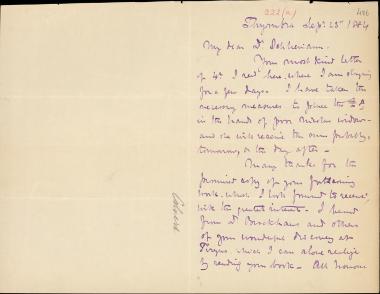 222(a)
486
Thymbra Sept. 23rd 1884
My dear Dr. Schliemann.
Your most kind letter
of 4th I recd here, where I am staying
for a few days. I have taken the
necessary measures to place the
in the hands of poor Nicolas widow
and she will receive the sum probably
tomorrow, or the day after -
Many thanks for the
promised copy of your forthcoming
book, which I look forward to receive
with the greatest interest. I heard
from Dr Brockhaus and others
of your wonderful discovery at
Tiryns which I can alone realize
by reading your book - All honour
Calvert